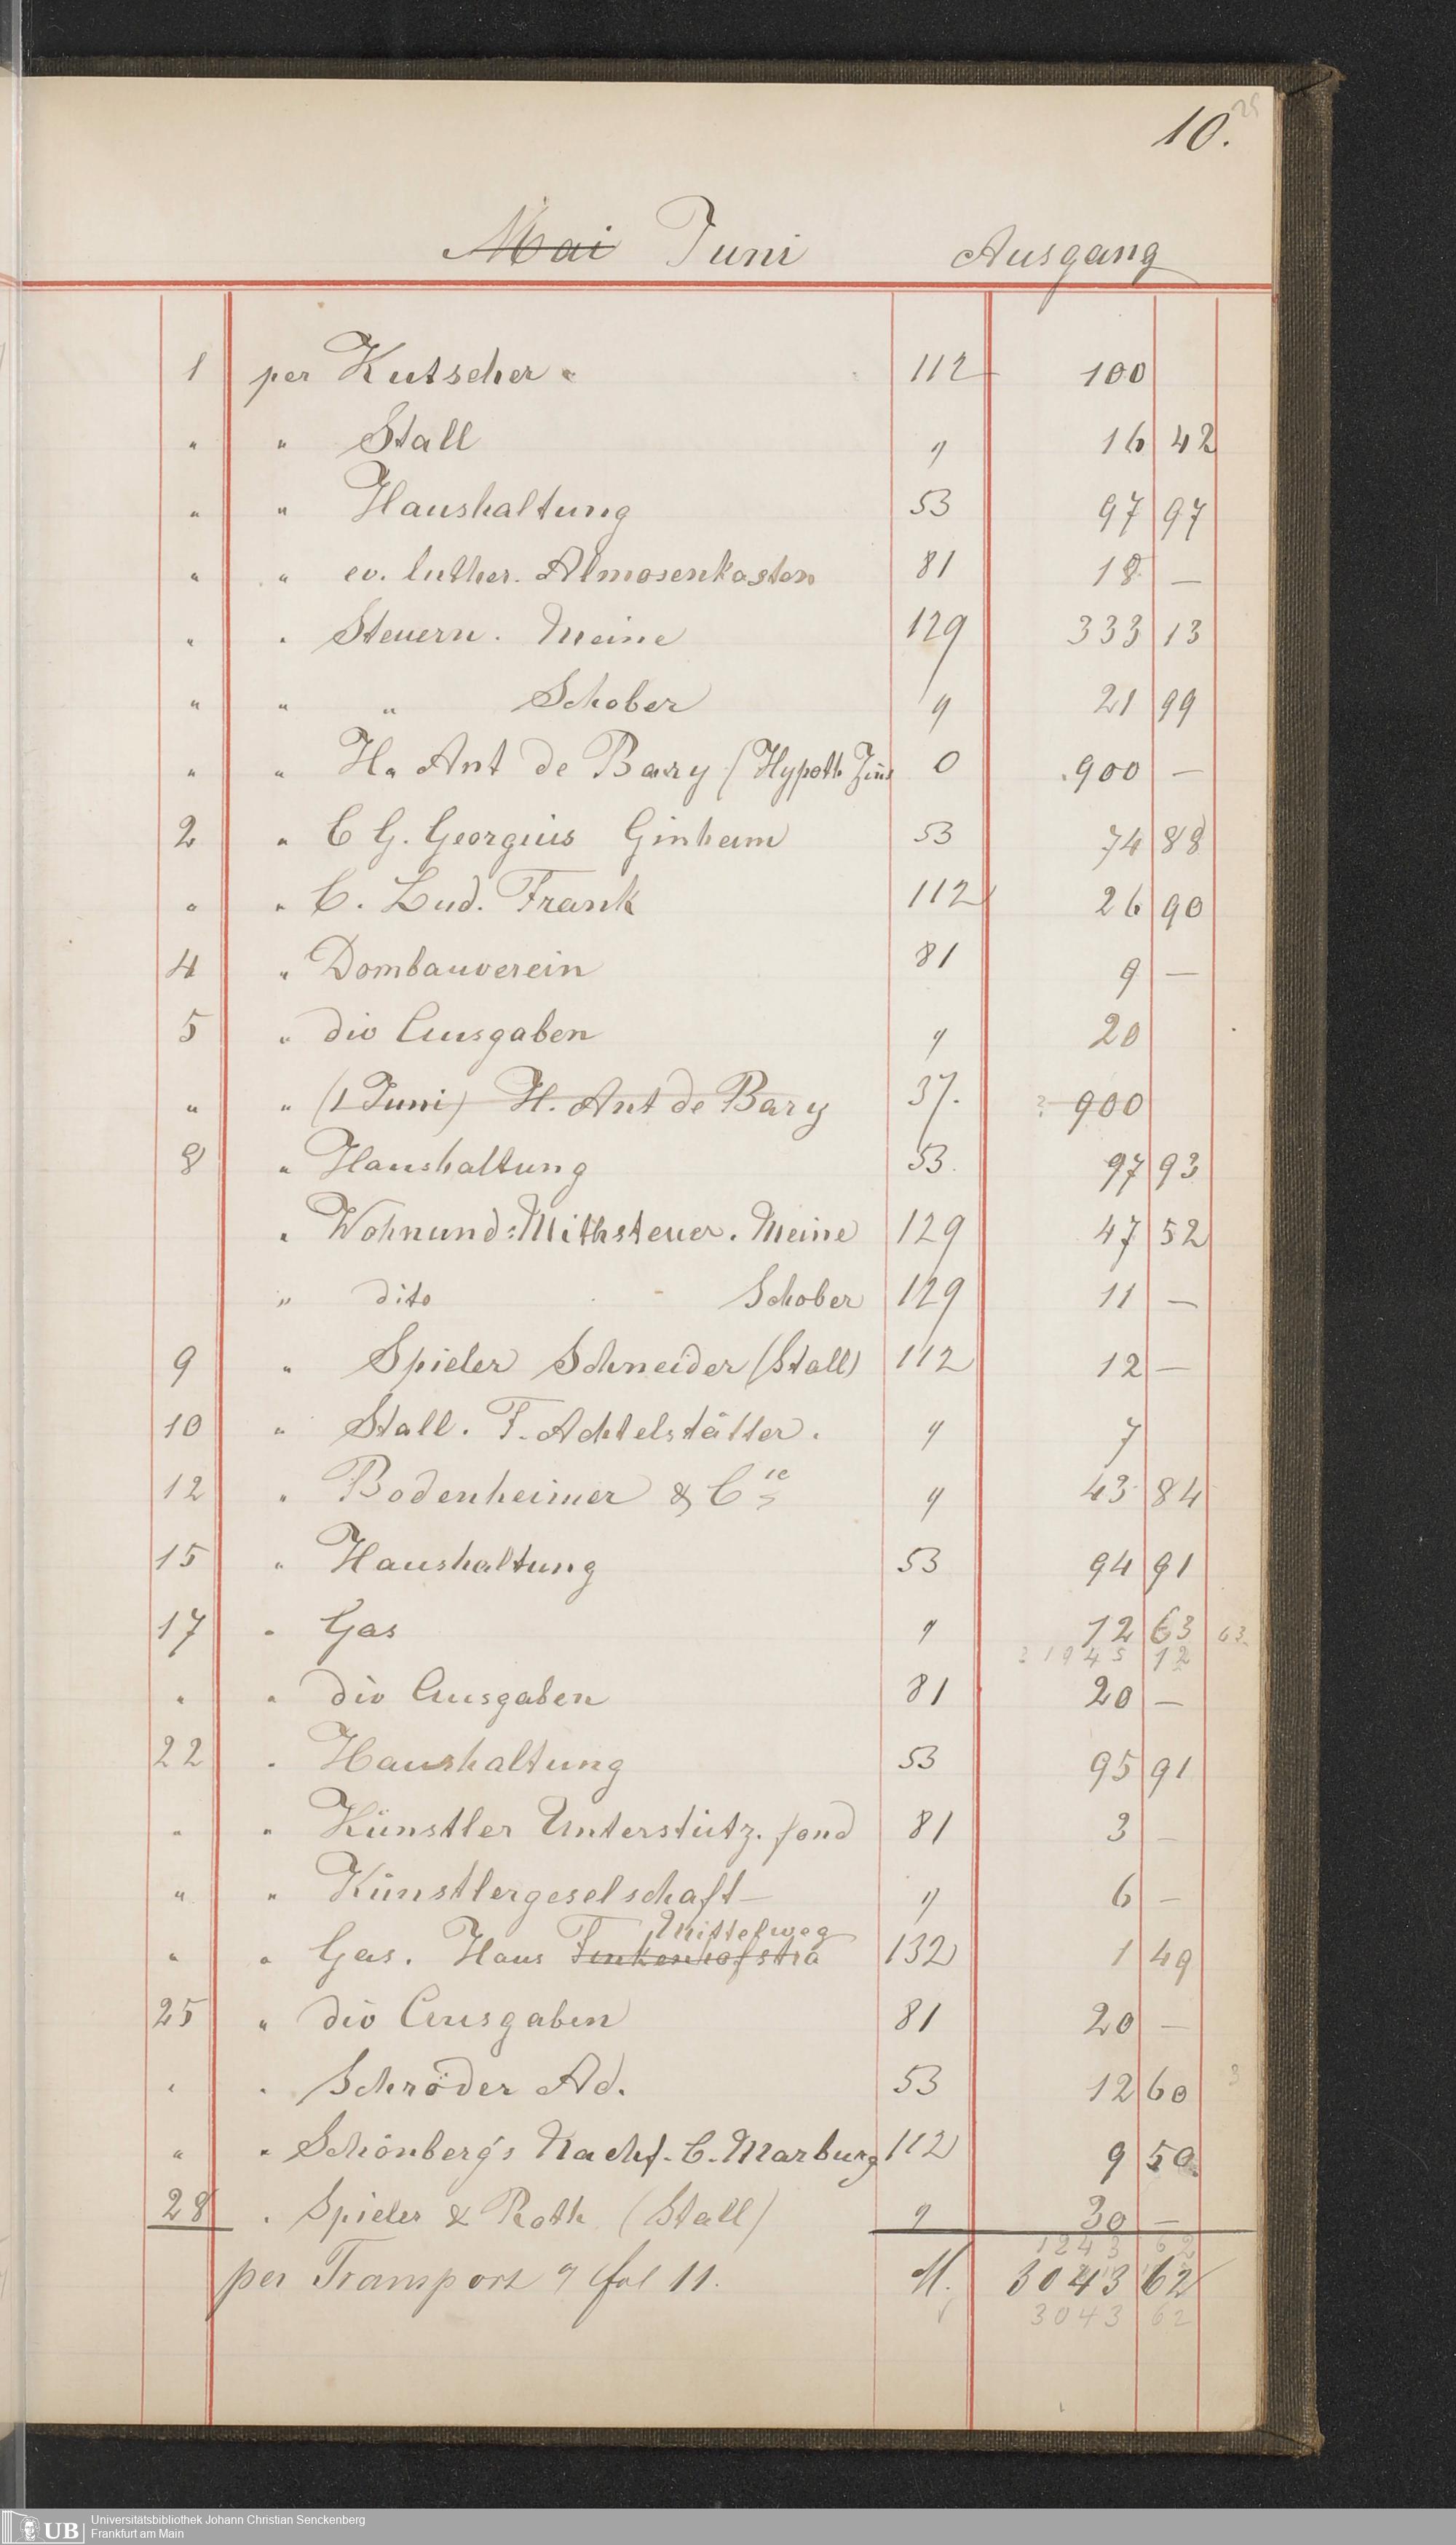 10.
Mai Juni Ausgang
1 per Kutscher " 112 100
" " Stall " 16 42
" " Haushaltung 53 97 97
" " ev. luther. Almosenkasten 81 18 —
" " Steuern. Meine 129 333 13
" " " Schober " 21 99
" " H. Ant de Bary (Hypoth Zins 0 900 —
2 " C G. Georgius Ginheim 53 74 88
" " C. Lud. Frank 112 26 90
4 " Dombauverein 81 9 —
5 " div Ausgaben " 20
" " (1 Juni) H. Ant de Bary 37. 900
8 " Haushaltung 53. 97 93
" Wohnund=Mithsteuer. Meine 129 47 52
" dito Schober 129 11 —
9 " Spieler Schneider (Stall) 112 12 —
10 " Stall. F. Achtelstätter. " 7
12 " Bodenheimer & Cie " 43 84
15 " Haushaltung 53 94 91
17 " Gas " 12 63 63
1945 12
" " div Ausgaben 81 20 —
22 " Haushaltung 53 95 91
" " Künstler Unterstütz. fond 81 3 —
" " Künstlergeselschaft " 6 —
Mittelweg
" " Gas. Haus Finkenhofstra 132 1 49
25 " div Ausgaben 81 20 —
" " Schröder Ad. 53 12 60
" " Schönberg's Nachf. C. Marburg 112 9 50
28 " Spieler & Roth (Stall) " 30 —
1243 62
per Transport " fol 11. M. 3043 62
3043 62
UB Universitätsbibliothek Johann Christian Senckenberg
Frankfurt am Main